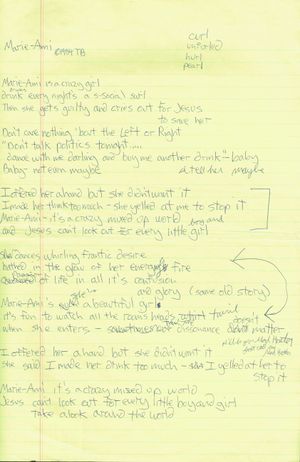 curl
unfurled
hurl
pearl
Marie-Ami ©1984 TB
Marie-Ami is a crazy girl
drink every night's a s-social swirl
Then she gets guilty and cries out for Jesus
to save her
Don't care nothing 'bout the Left or Right
"Don't talk politics tonight.....
dance with me darling and buy me another drink"-baby
Baby- not even maybe & tell her maybe
I offered her a hand but she didn't want it
I made her think too much - she yelled at me to stop it
Marie-Ami - it's a crazy mixed up world
boy and
and Jesus can't look out for every little girl
She dances whirling frantic desire
bathed in the glow of her energy's fire
of life in all it's confusion
and glory (same old story)
Marie-Ami's a beautiful girl
it's fun to watch all the room's heads twirl
when she enters - dissonance doesn't matter
I offered her a hand but she didn't want it
she said I made her think too much - I yelled at her to
stop it
Marie-Ami it's a crazy mixed up world
Jesus can't look out for every little boy and girl
Take a look around the world